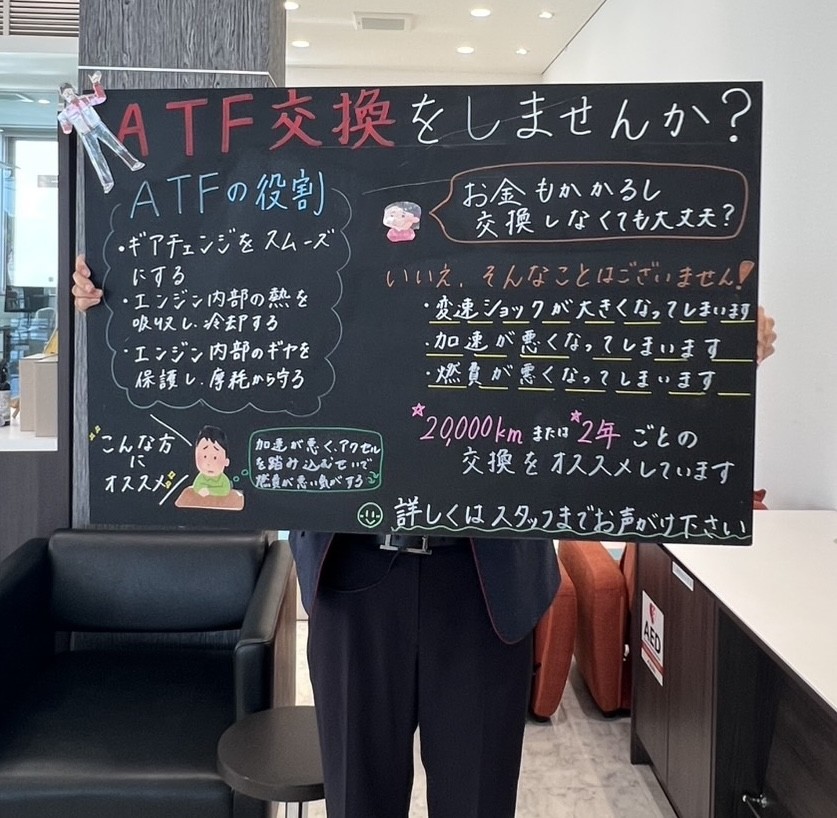 ATF交換をしませんか？
ATFの役割
・ギアチェンジをスムーズ
にする
・エンジン内部の熱を
吸収し、冷却する
・エンジン内部のギヤを
保護し、摩耗から守る
こんな方
に
オススメ
加速が悪く、アクセル
を踏み込むせいで
燃費が悪い気がする
お金もかかるし
交換しなくても大丈夫？
いいえ、そんなことはございません！
・変速ショックが大きくなってしまいます
・加速が悪くなってしまいます
・燃費が悪くなってしまいます
20,000km または 2年 ごとの
交換をオススメしています
詳しくはスタッフまでお声がけ下さい
AED